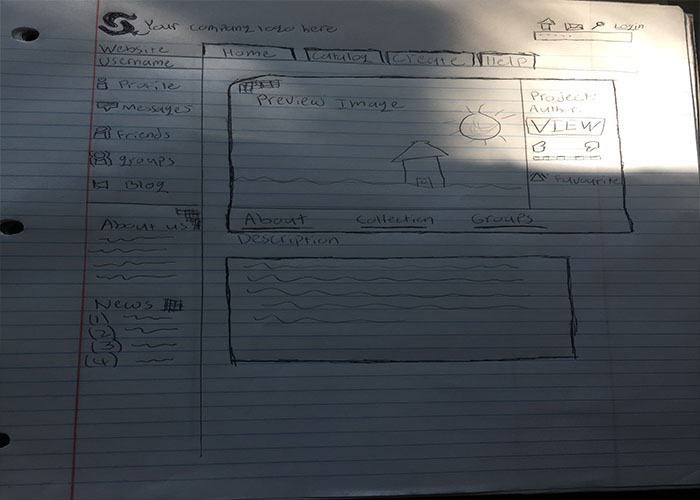 Your company logo here
Login
Website
Username
Home
Catalog
Create
Help
Profile
Messages
Friends
groups
Blog
Preview Image
Project:
Author:
VIEW
Favourite
About
Collection
Groups
About us
Description
News
(1)
(2)
(3)
(4)